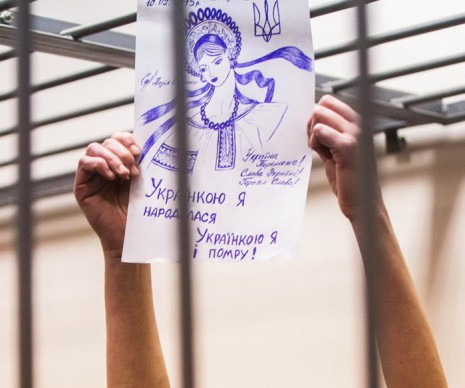 Україна
Переможе!
Слава Україні!
Героям Слава!
УКРАЇНКОЮ Я
НАРОДИЛАСЯ
УКРАЇНКОЮ Я
І ПОМРУ!